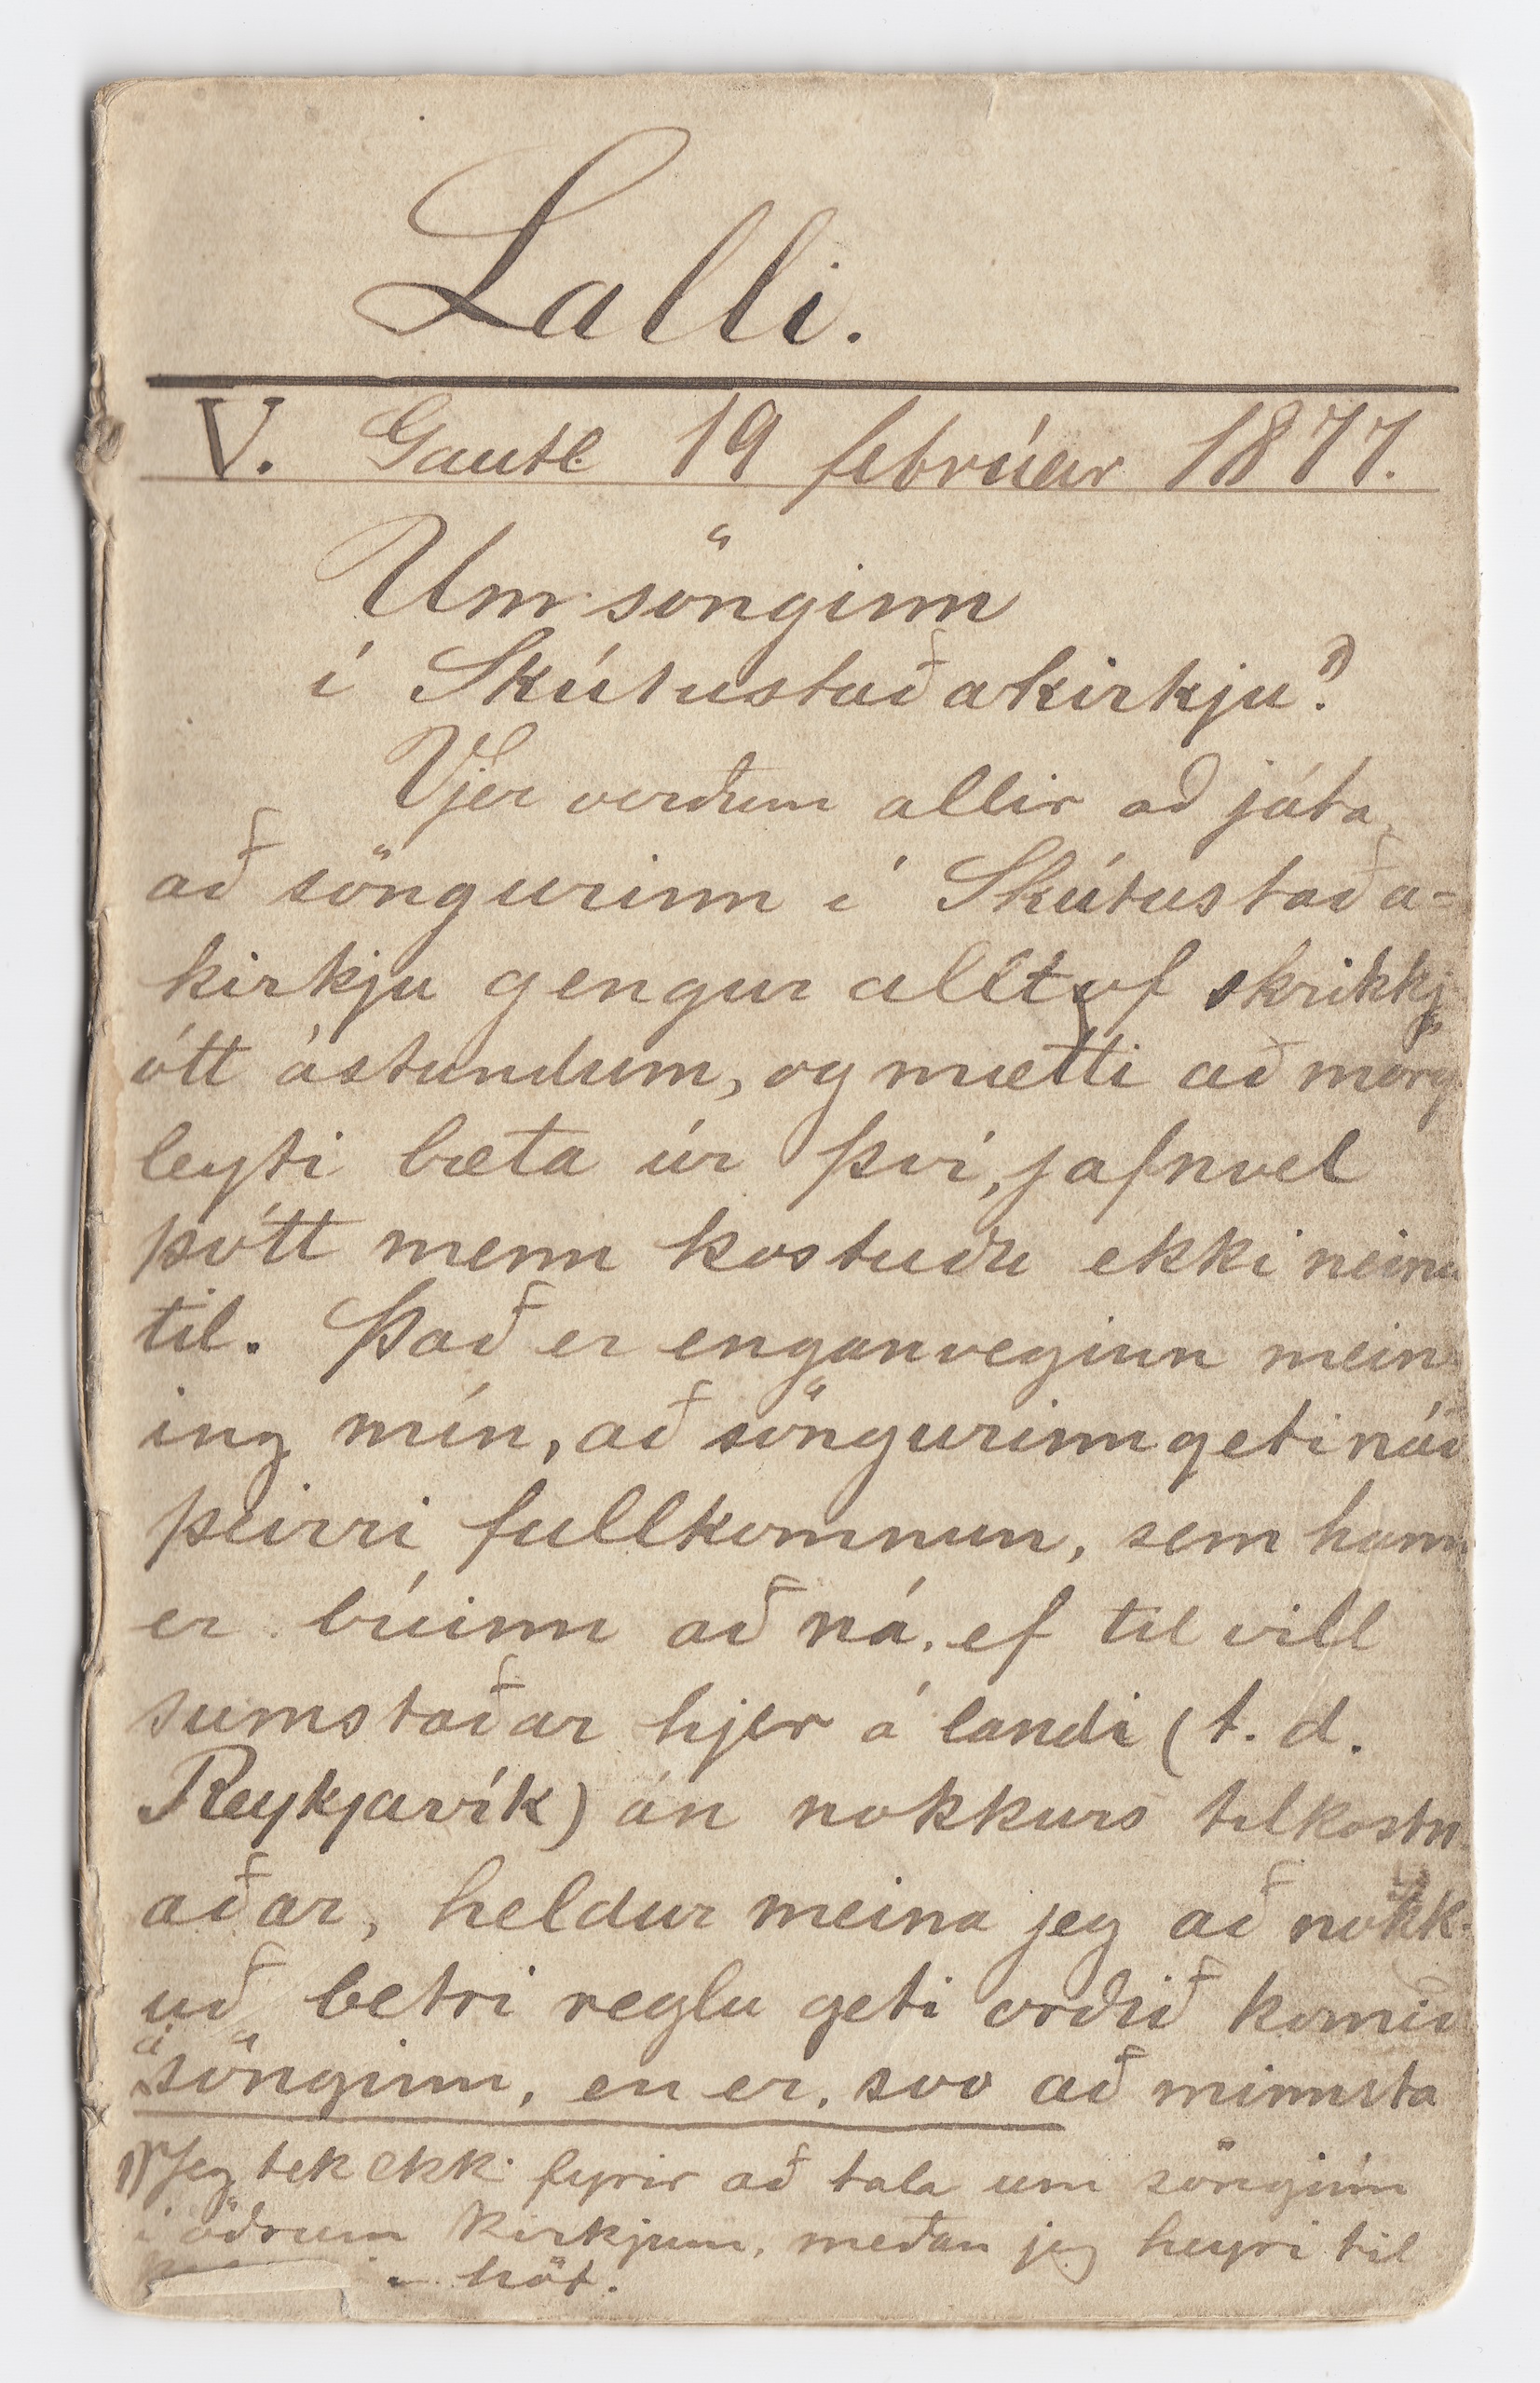 Lalli.
V. Gautl. 19 febrúar 1877.
Um sönginn
í Skútustaðakirkju. 1)
Vjer verðum allir að játa,
að söngurinn í Skútustaða=
kirkju gengur alltof skrikkj
ótt ástundum, og mætti að mörg
leyti bæta úr því, jafnvel
þótt menn kostuðu ekki neinu
til. Það er enganveginn mein
ing mín, að söngurinn geti náð
þeirri fullkomnun, sem hann
er búinn að ná, ef til vill
sumstaðar hjer á landi (t. d.
Reykjavík) án nokkurs tilkostn
aðar, heldur meina jeg að nokk-
uð betri reglu geti orðið komið
á sönginn, en er, svo að minnsta
1) Jeg tek ekki fyrir að tala um sönginn
í öðrum kirkjum, meðan jeg heyri til
hót.